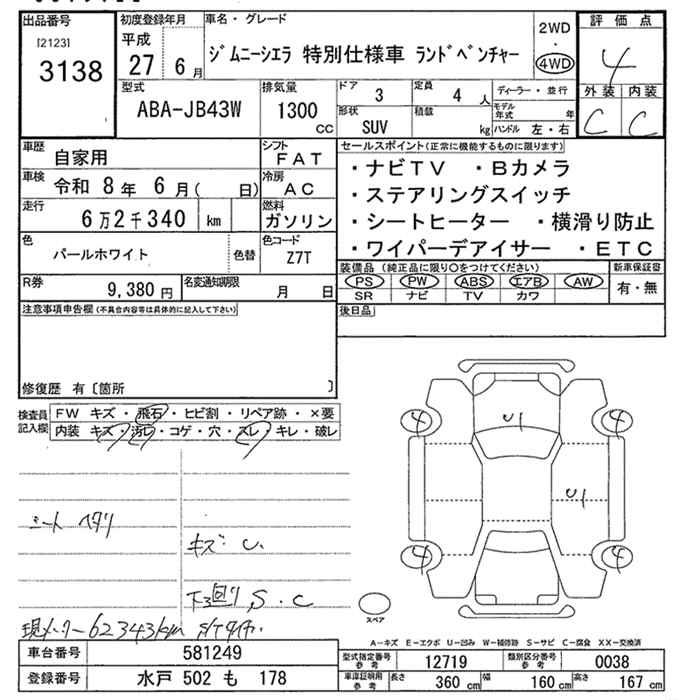 出品番号
[2123]
3138
初度登録年月
平成
27 6月
車名・グレード
ジムニーシエラ 特別仕様車 ランドベンチャー
2WD
・
4WD
評価点
4
外装 内装
C C
型式
ABA-JB43W
排気量
1300
CC
ドア
3
定員
4 人
ディーラー・並行
モデル年式 年
形状
SUV
積載
kg
ハンドル 左・右
車歴
自家用
シフト
FAT
車検
令和 8年 6月( 日)
冷房
AC
走行
6万2千340 km
燃料
ガソリン
色
パールホワイト
色替
色コード
Z7T
R券
9,380 円
名変通知期限
月 日
セールスポイント(正常に機能するものに限ります)
・ナビTV ・Bカメラ
・ステアリングスイッチ
・シートヒーター ・横滑り防止
・ワイパーデアイサー ・ETC
装備品 (純正品に限り○をつけてください)
PS PW ABS エアB AW
SR ナビ TV カワ
新車保証書
有・無
注意事項申告欄(不具合内容等は具体的に記入して下さい)
後日品
修復歴 有〔箇所 〕
検査員記入欄
FW キズ・飛石・ヒビ割・リペア跡・×要
内装 キズ・汚レ・コゲ・穴・スレ・キレ・破レ
シート ヘタリ
キズ U.
下回り S.C
現メーター62343km
4
4
4
4
U1
U1
スペア
A-キズ E-エクボ U-凹み W-補修跡 S-サビ C-腐食 XX-交換済
車台番号
581249
登録番号
水戸 502 も 178
型式指定番号参考
12719
類別区分番号参考
0038
車庫証明用参考
長さ 360 cm 幅 160 cm 高さ 167 cm